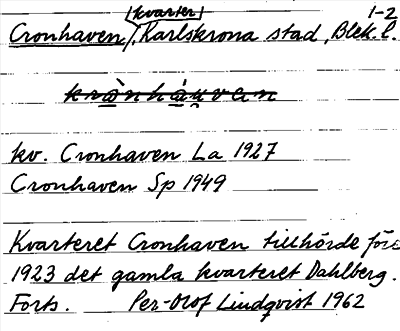 1-2
Cronhaven, kvarter, Karlskrona stad, Blek. l.
krònháuvan
kv. Cronhaven La 1927
Cronhaven Sp 1949
Kvarteret Cronhaven tillhörde före
1923 det gamla kvarteret Dahlberg.
Forts. Per-Olof Lindqvist 1962